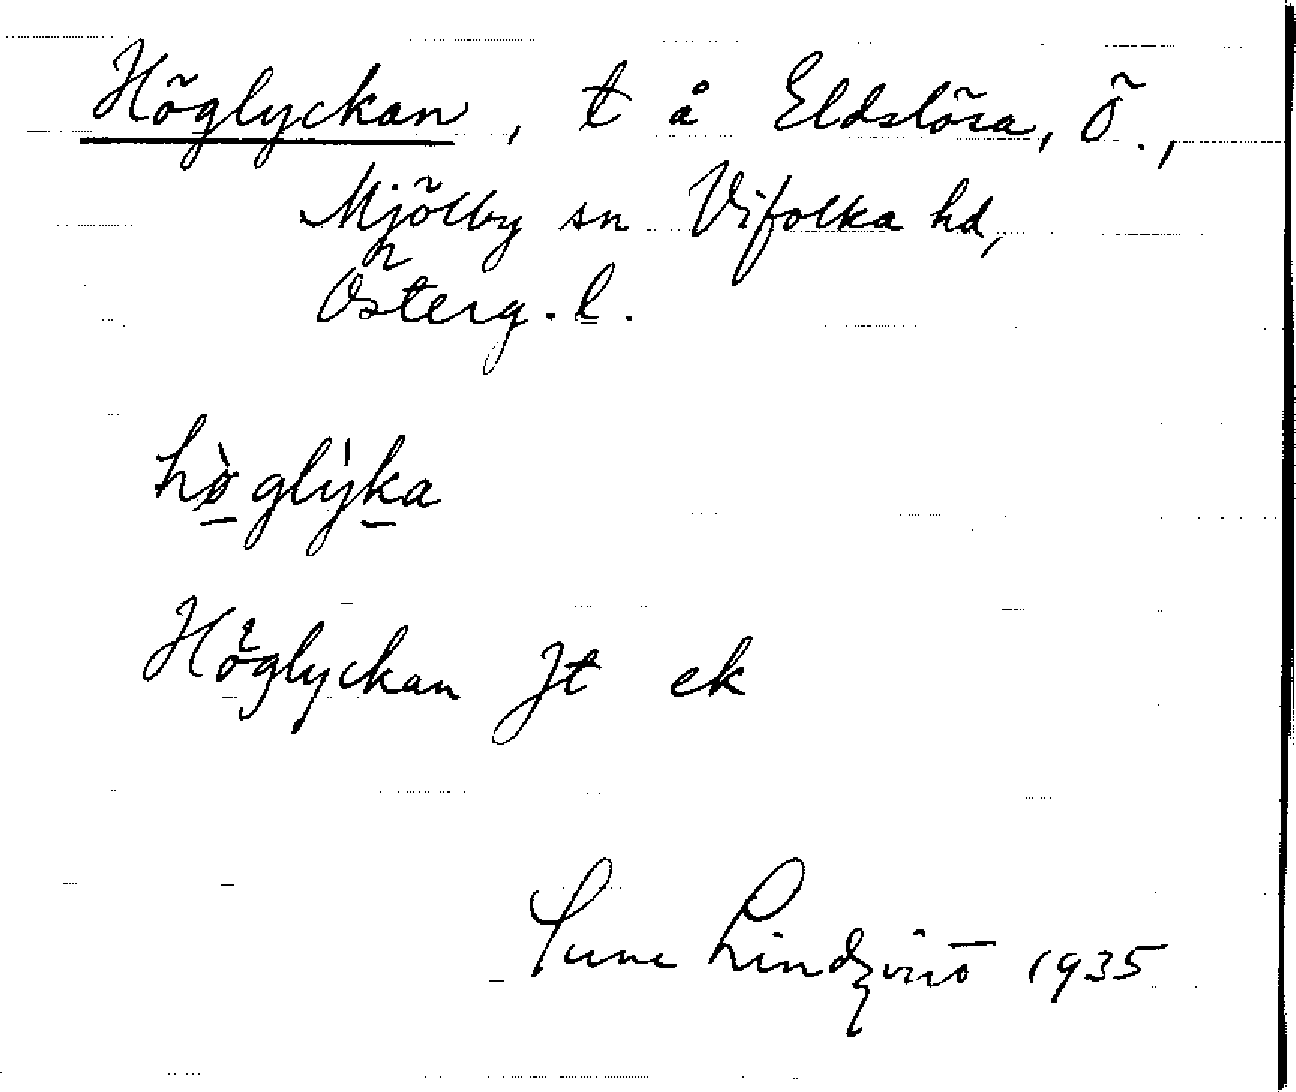 Höglyckan, t å Eldslösa, Ö.,
Mjölby sn Vifolka hd,
Österg. l.
hø̀glýka
Höglyckan Jt ek
Sune Lindqvist 1935